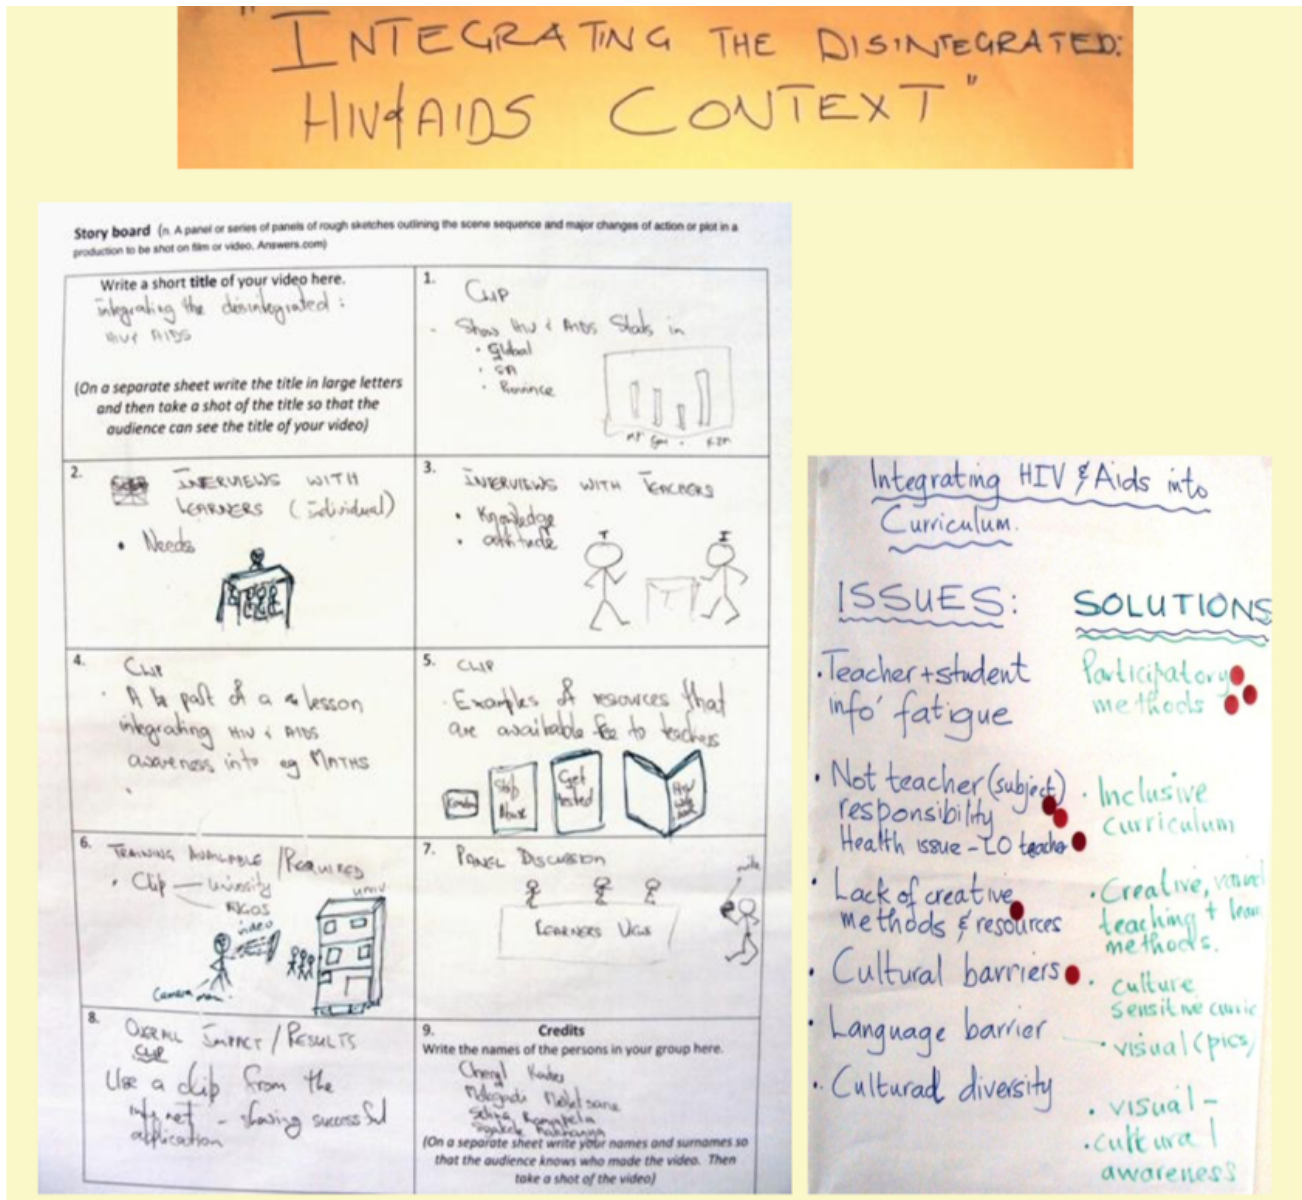 "INTEGRATING THE DISINTEGRATED:
HIV & AIDS CONTEXT"
Story board (n. A panel or series of panels of rough sketches outlining the scene sequence and major changes of action or plot in a
production to be shot on film or video, Answers.com)
Write a short title of your video here.
integrating the disintegrated :
HIV & AIDS
(On a separate sheet write the title in large letters
and then take a shot of the title so that the
audience can see the title of your video)
1.
CLIP
- Show HIV & AIDS Stats in
• Global
• SA
• Province
KZN
2.
INERVIEWS WITH
LEARNERS (individual)
• Needs
3.
INTERVIEWS WITH TEACHERS
• Knowledge
• attitude
T I
4.
CLIP
• A part of a lesson
integrating HIV & AIDS
awareness into eg MATHS
5.
CLIP
- Examples of resources that
are available to teachers
Condom
Stop
Abuse
Get
tested
HIV
6.
TRAINING AVAILABLE / REQUIRED
• Clip
NGOS
univ
video
Camera man
7.
PANEL DISCUSSION
mike
LEARNERS
8.
OVERALL IMPACT / RESULTS
CLIP
Use a clip from the
net - showing successful
application
9.
Credits
Write the names of the persons in your group here.
Cheryl
(On a separate sheet write your names and surnames so
that the audience knows who made the video. Then
take a shot of the video)
Integrating HIV & Aids into
Curriculum.
ISSUES:
• Teacher + student
info' fatigue
• Not teacher (subject)
responsibility
Health issue - LO teacher
• Lack of creative
methods & resources
• Cultural barriers
• Language barrier
• Culturad diversity
SOLUTIONS
Participatory
methods
• Inclusive
curriculum
• Creative,
teaching + learn
methods.
• culture
sensitive curric
• visual (pics)
• visual -
• cultural
awareness